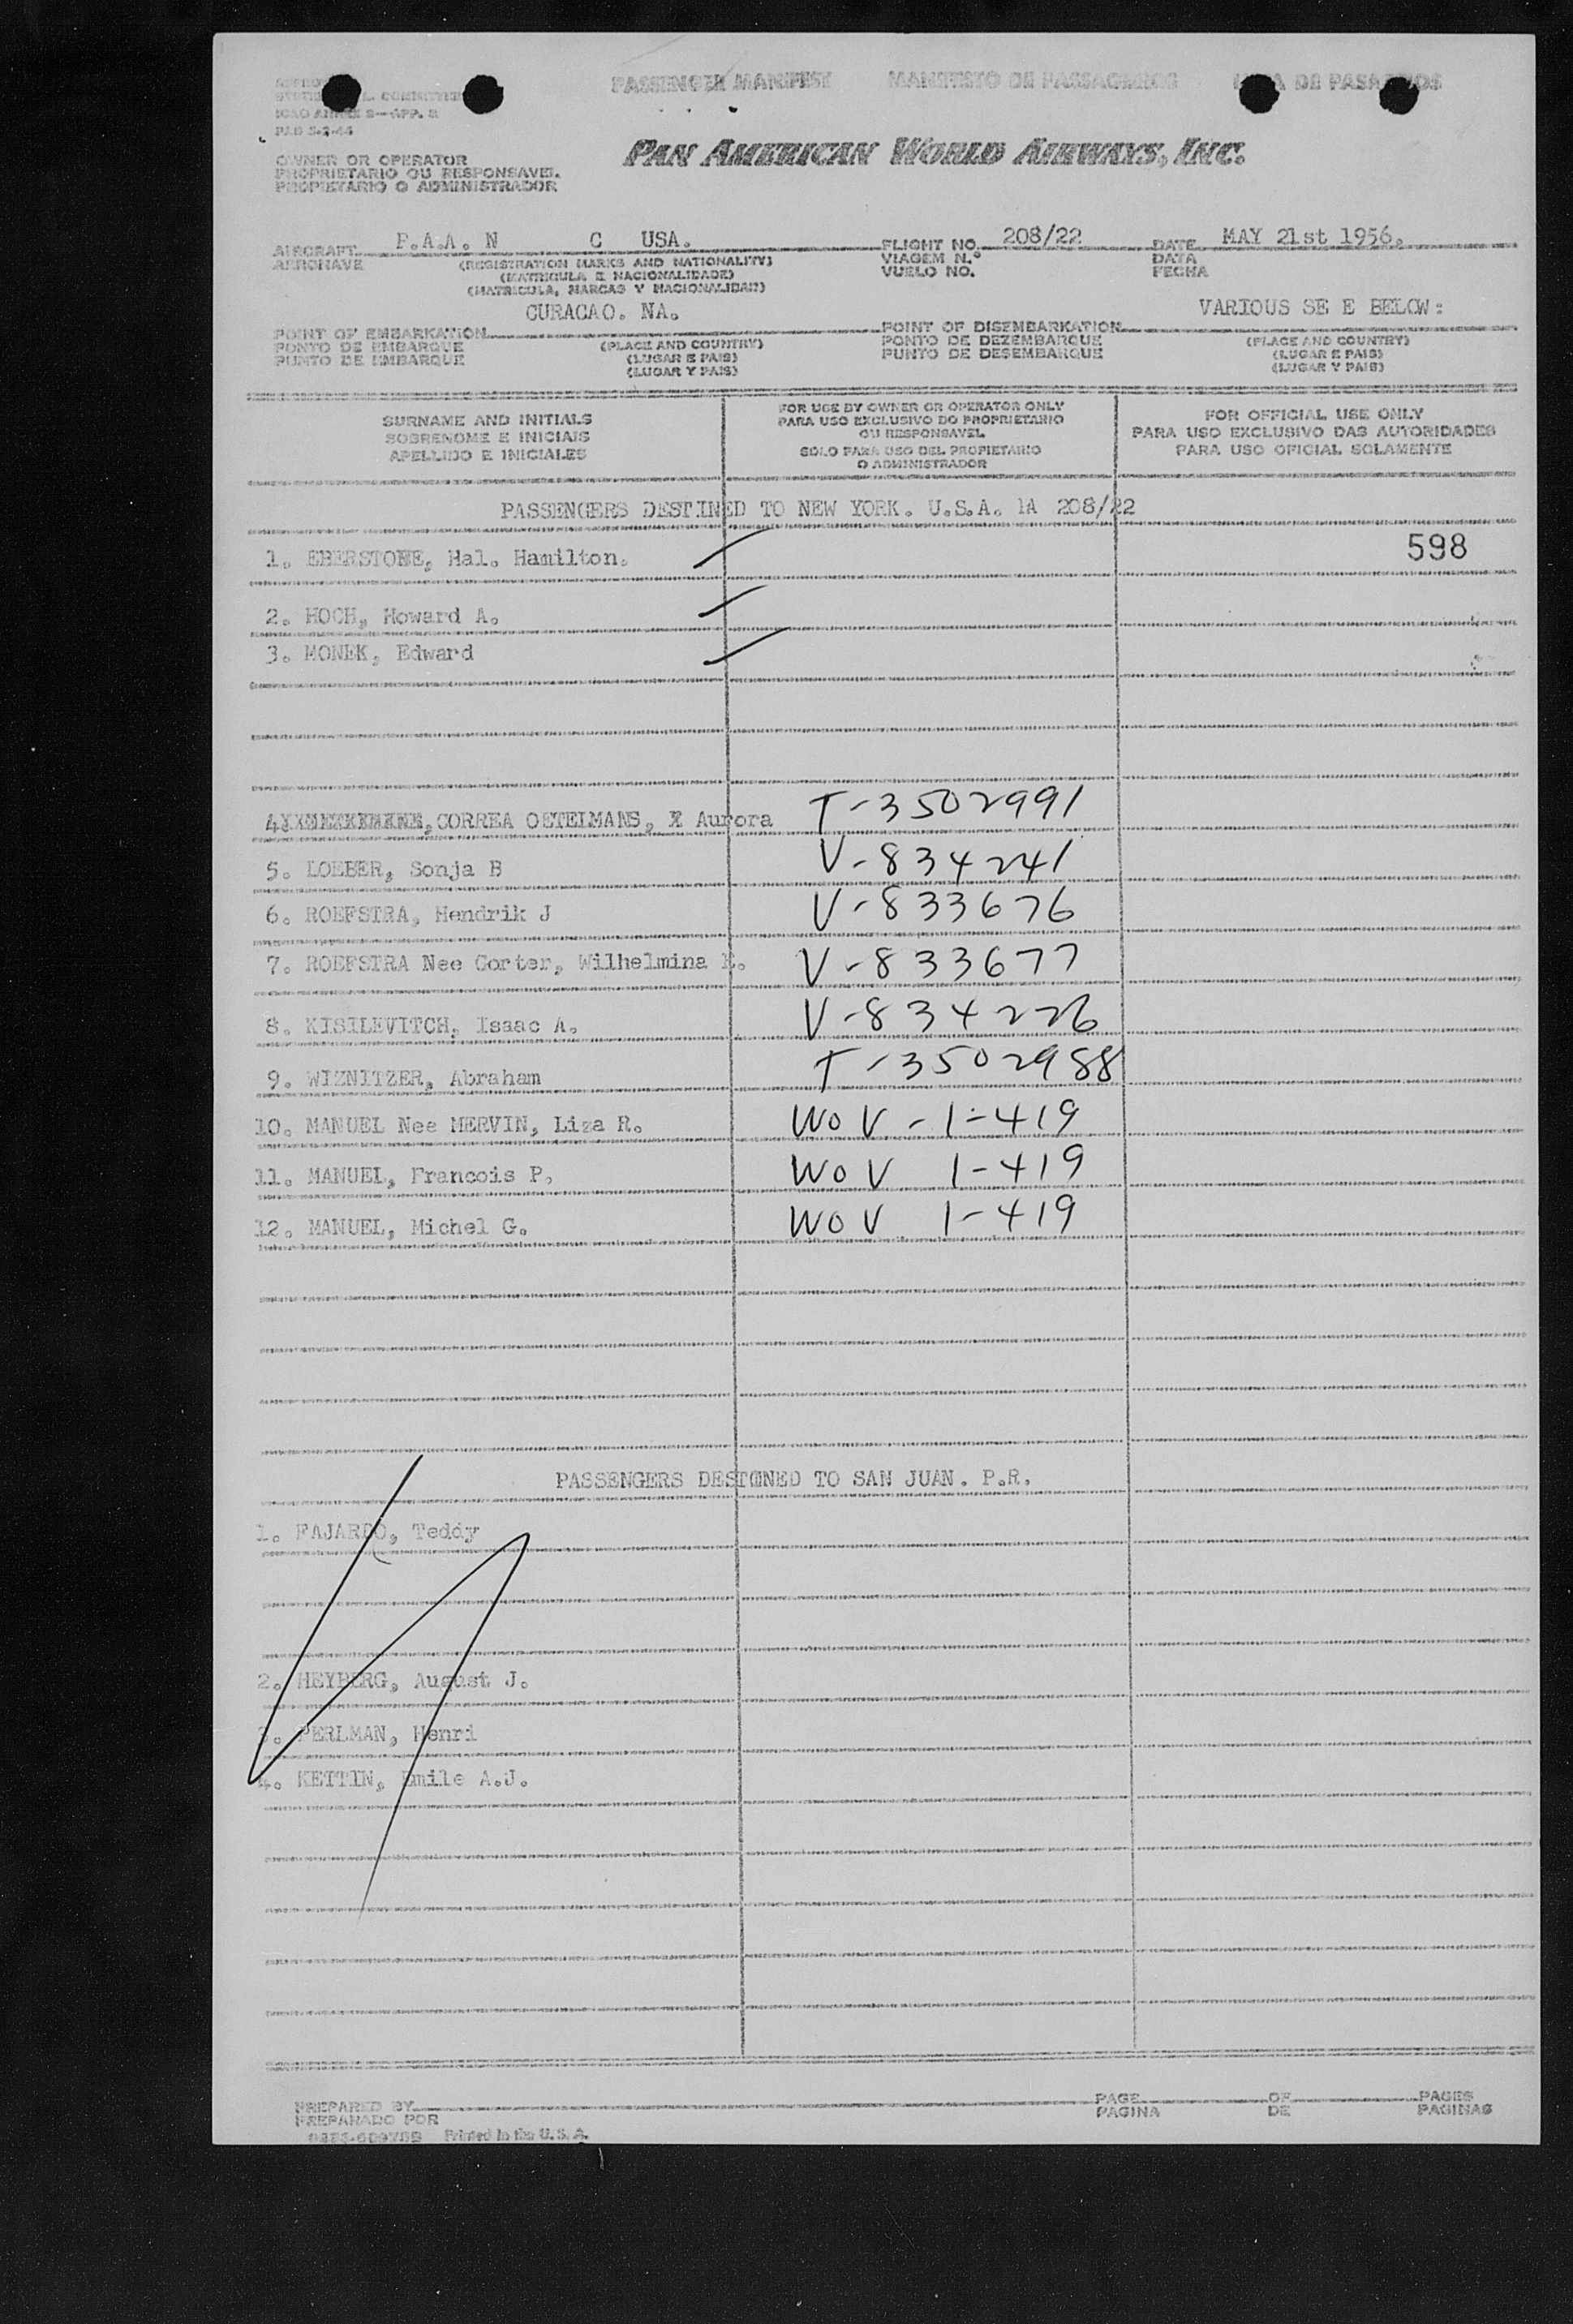 PASSENGER MANIFEST MANIFESTO DE PASSAGEIROS DE
ICAO ANNEX 9—APP. 3
OWNER OR OPERATOR
PROPRIETARIO OU RESPONSAVEL
PROPIETARIO O ADMINISTRADOR
PAN AMERICAN WORLD AIRWAYS, INC.
AIRCRAFT P.A.A. N C USA. FLIGHT NO. 208/22 DATE MAY 21st 1956.
AERONAVE (REGISTRATION MARKS AND NATIONALITY) VIAGEM N.º DATA
(MATRICULA E NACIONALIDADE) VUELO NO. FECHA
(MATRICULA, MARCAS Y NACIONALIDAD)
CURACAO. NA. VARIOUS SE E BELOW:
POINT OF EMBARKATION POINT OF DISEMBARKATION
PONTO DE EMBARQUE (PLACE AND COUNTRY) PONTO DE DEZEMBARQUE (PLACE AND COUNTRY)
PUNTO DE EMBARQUE (LUGAR E PAIS) PUNTO DE DESEMBARQUE (LUGAR E PAIS)
(LUGAR Y PAIS) (LUGAR Y PAIS)
SURNAME AND INITIALS
SOBRENOME E INICIAIS
APELLIDO E INICIALES
FOR USE BY OWNER OR OPERATOR ONLY
PARA USO EXCLUSIVO DO PROPRIETARIO
OU RESPONSAVEL
SOLO PARA USO DEL PROPIETARIO
O ADMINISTRADOR
FOR OFFICIAL USE ONLY
PARA USO EXCLUSIVO DAS AUTORIDADES
PARA USO OFICIAL SOLAMENTE
PASSENGERS DESTINED TO NEW YORK. U.S.A. 1A 208/22
1. EBERSTONE, Hal. Hamilton. 598
2. HOCH, Howard A.
3. MONEK, Edward
4 CORREA OSTEIMANS, Aurora T-3502991
5. LOEBER, Sonja B V-834241
6. ROEFSTRA, Hendrik J V-833676
7. ROEFSTRA Nee Gorter, Wilhelmina V-833677
8. KISILEVITCH, Isaac A. V-834226
9. WIZNITZER, Abraham T-3502988
10. MANUEL Nee MERVIN, Liza R. WOV-1-419
11. MANUEL, Francois P. WOV 1-419
12. MANUEL, Michel G. WOV 1-419
PASSENGERS DESTINED TO SAN JUAN. P.R.
1. FAJARDO, Teddy
2. HEYBERG, August J.
3. PERLMAN, Henri
4. KETTIN, Emile A.J.
PREPARED BY PAGE OF PAGES
PREPARADO POR PAGINA DE PAGINAS
Printed in the U.S.A.